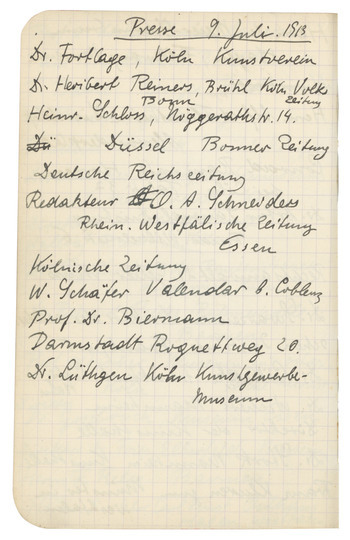 Presse 9. Juli. 1913
Dr. Fortlage, Köln Kunstverein
Dr. Heribert Reiners, Brühl Köln Volks
Zeitung
Bonn
Heinr. Schloss, Nöggerathstr. 14.
Dü Düssel Bonner Zeitung
Deutsche Reichszeitung
Redakteur O. A. Schneiders
Rhein. Westfälische Zeitung
Essen
Kölnische Zeitung
W. Schäfer Valendar b. Coblenz
Prof. Dr. Biermann
Darmstadt Roquettweg 20.
Dr. Lüthgen Köln Kunstgewerbe-
museum